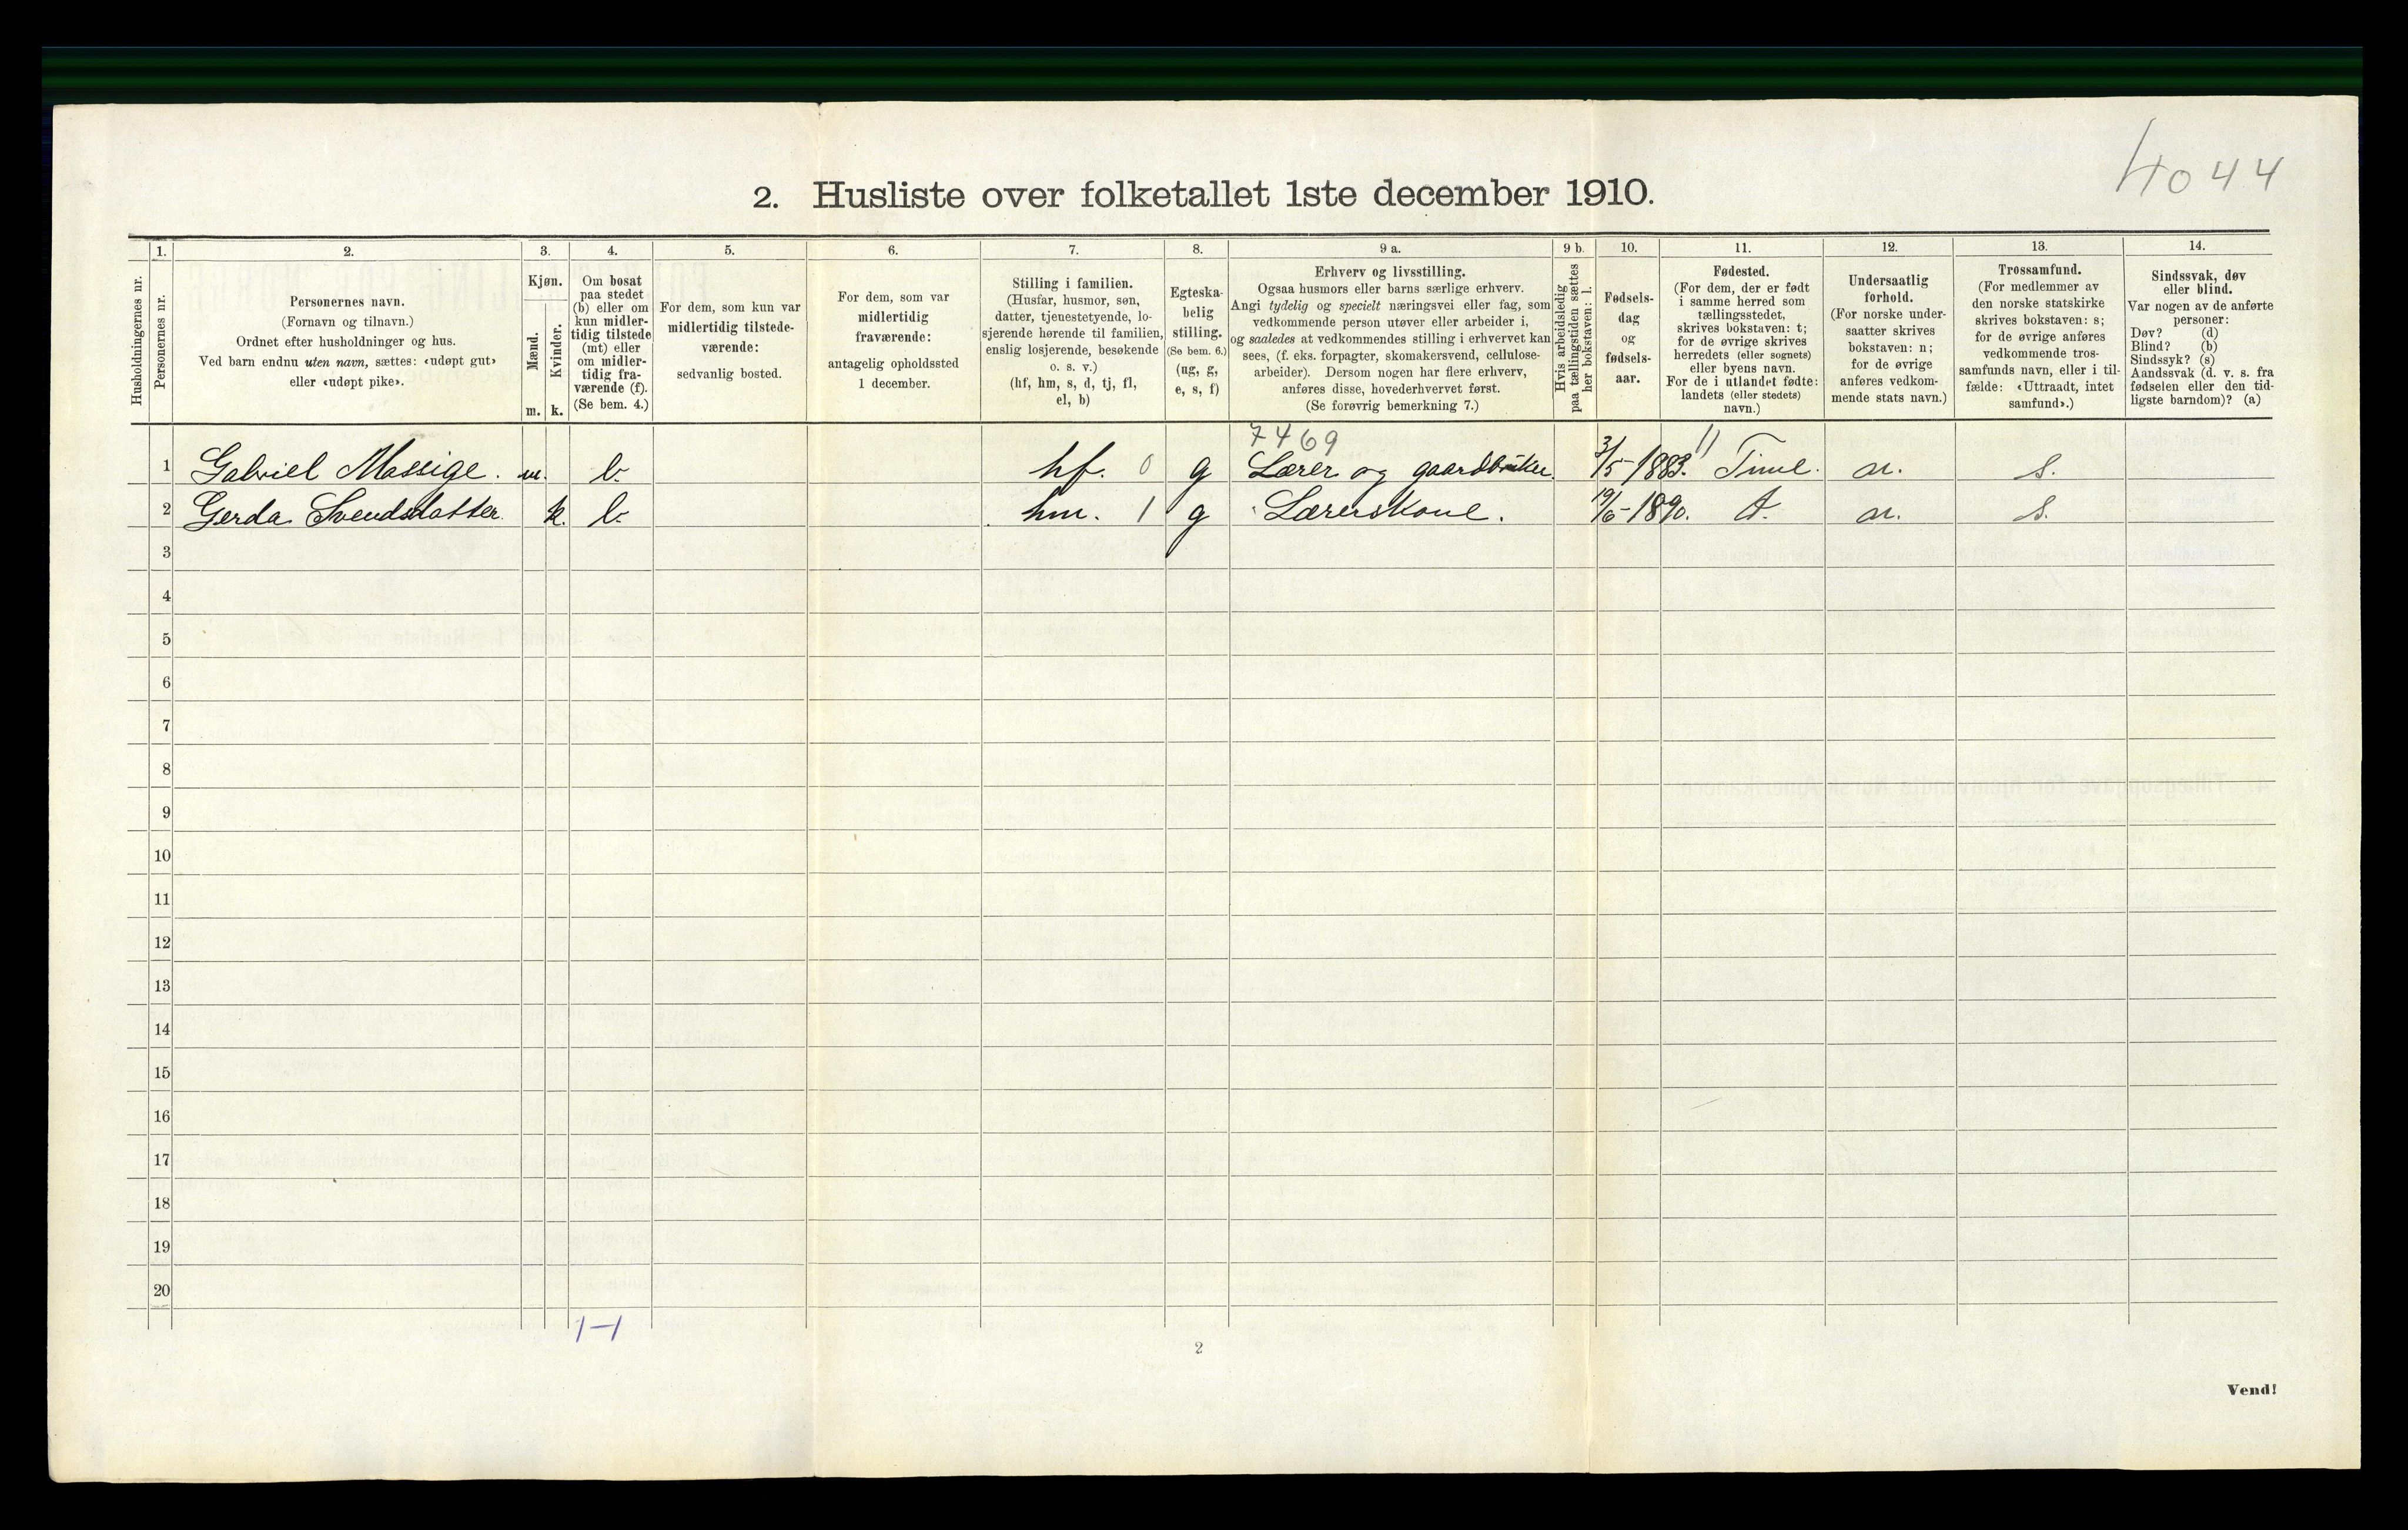 4044
2. Husliste over folketallet 1ste december 1910.
Husholdningernes nr.
1.
Personernes nr.
2.
Personernes navn.
(Fornavn og tilnavn.)
Ordnet efter husholdninger og hus.
Ved barn endnu uten navn, sættes: «udøpt gut»
eller «udøpt pike».
3.
Kjøn.
Mænd.
Kvinder.
m. k.
4.
Om bosat
paa stedet
(b) eller om
kun midler-
tidig tilstede
(mt) eller
om midler-
tidig fra-
værende (f).
(Se bem. 4.)
5.
For dem, som kun var
midlertidig tilstede-
værende:
sedvanlig bosted.
6.
For dem, som var
midlertidig
fraværende:
antagelig opholdssted
1 december.
7.
Stilling i familien.
(Husfar, husmor, søn,
datter, tjenestetyende, lo-
sjerende hørende til familien,
enslig losjerende, besøkende
o. s. v.)
(hf, hm, s, d, tj, fl,
el, b)
8.
Egteska-
belig
stilling.
(Se bem. 6.)
(ug, g,
e, s, f)
9 a.
Erhverv og livsstilling.
Ogsaa husmors eller barns særlige erhverv.
Angi tydelig og specielt næringsvei eller fag, som
vedkommende person utøver eller arbeider i,
og saaledes at vedkommendes stilling i erhvervet kan
sees, (f. eks. forpagter, skomakersvend, cellulose-
arbeider). Dersom nogen har flere erhverv,
anføres disse, hovederhvervet først.
(Se forøvrig bemerkning 7.)
9 b.
Hvis arbeidsledig
paa tællingstiden sættes
her bokstaven: l.
10.
Fødsels-
dag
og
fødsels-
aar.
11.
Fødested.
(For dem, der er født
i samme herred som
tællingsstedet,
skrives bokstaven: t;
for de øvrige skrives
herredets (eller sognets)
eller byens navn.
For de i utlandet fødte:
landets (eller stedets)
navn.)
12.
Undersaatlig
forhold.
(For norske under-
saatter skrives
bokstaven: n;
for de øvrige
anføres vedkom-
mende stats navn.)
13.
Trossamfund.
(For medlemmer av
den norske statskirke
skrives bokstaven: s;
for de øvrige anføres
vedkommende tros-
samfunds navn, eller i til-
fælde: «Uttraadt, intet
samfund».)
14.
Sindssvak, døv
eller blind.
Var nogen av de anførte
personer:
Døv? (d)
Blind? (b)
Sindssyk? (s)
Aandssvak (d. v. s. fra
fødselen eller den tid-
ligste barndom)? (a)
7469 11
1 Gabriel Massige. m. b. hf. 0 g Lærer og gaardbruker. 3/5-1883. Time. n. s.
2 Gerda Svendsdatter. k. b. hm. 1 g Lærerskone. 19/6-1890. t. n. s.
3
4
5
6
7
8
9
10
11
12
13
14
15
16
17
18
19
20
1-1
2
Vend!